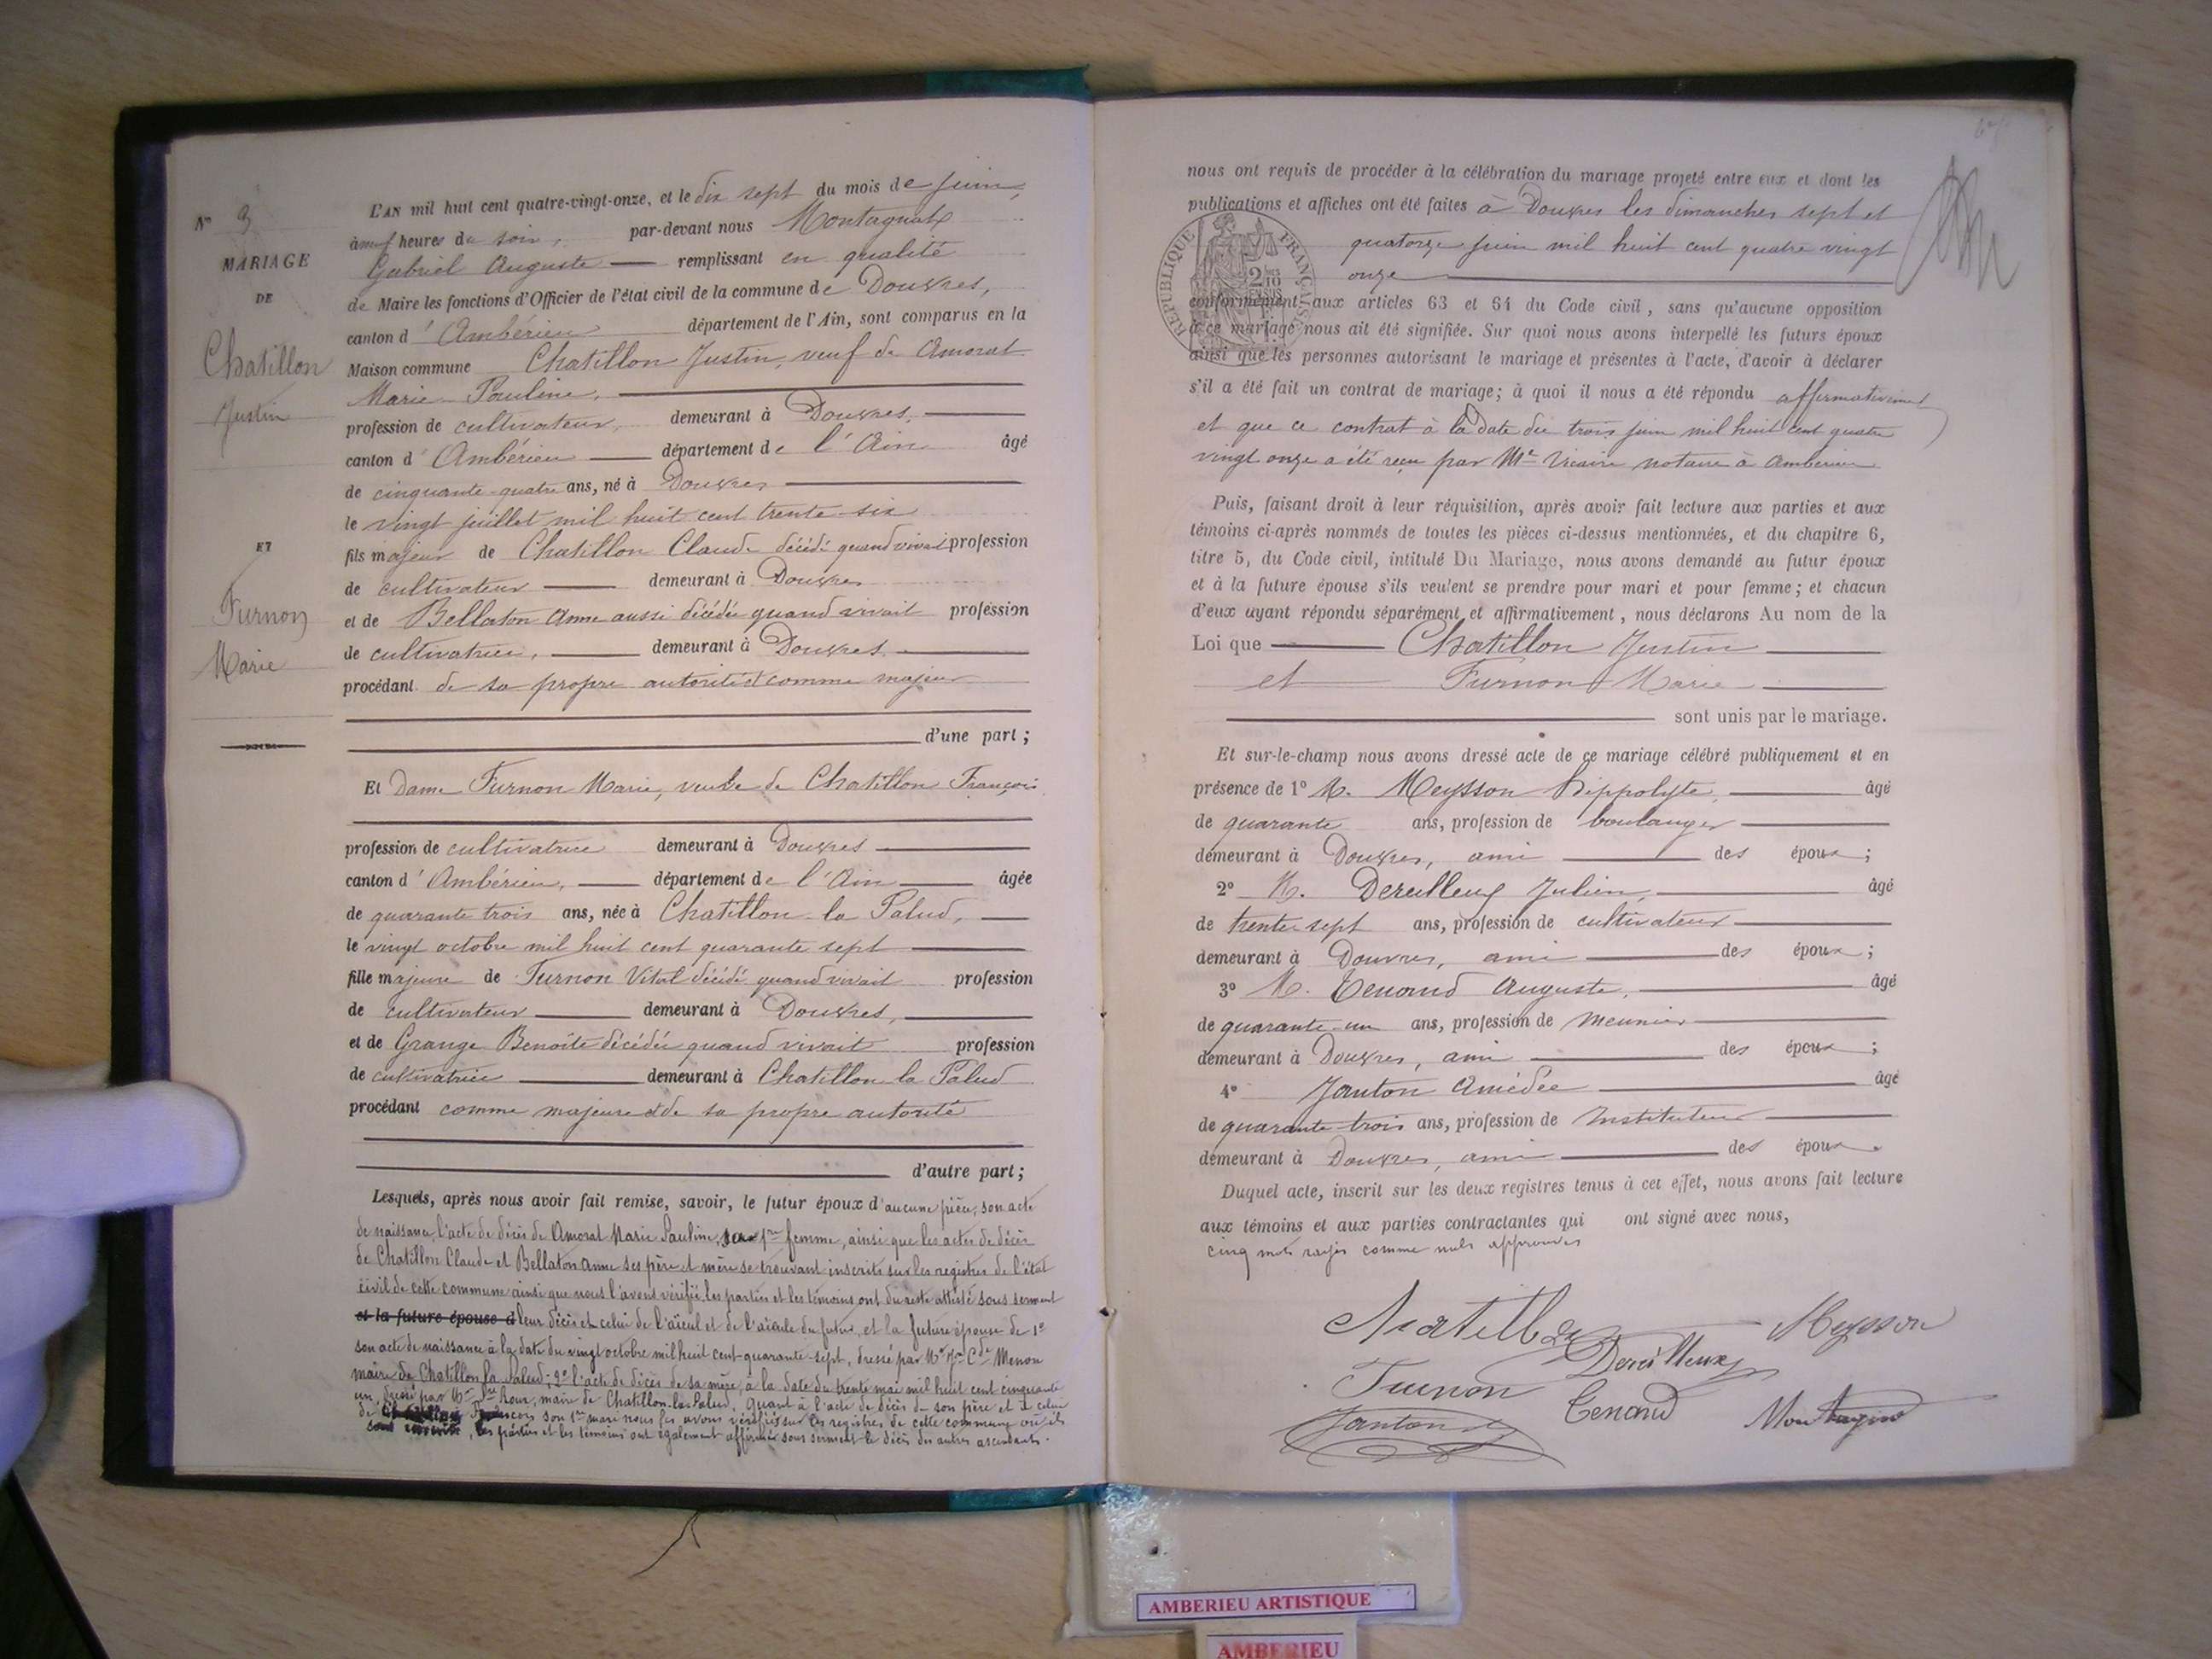 N° 3
MARIAGE
DE
Chatillon
Justin
ET
Furnon
Marie
L'AN mil huit cent quatre-vingt-onze, et le dix sept du mois de juin,
à neuf heures du soir, par-devant nous Montagnat
Gabriel Auguste remplissant en qualité
de Maire les fonctions d'Officier de l'état civil de la commune de Douvres,
canton d'Ambérieu département de l'Ain, sont comparus en la
Maison commune Chatillon Justin, veuf de Amorat
Marie Pauline,
profession de cultivateur, demeurant à Douvres,
canton d'Ambérieu département de l'Ain âgé
de cinquante-quatre ans, né à Douvres
le vingt juillet mil huit cent trente-six
fils majeur de Chatillon Claude décédé quand vivait profession
de cultivateur demeurant à Douvres
et de Bellaton Anne aussi décédée quand vivait profession
de cultivatrice, demeurant à Douvres
procédant de sa propre autorité et comme majeur
d'une part ;
Et Dame Furnon Marie, veuve de Chatillon François
profession de cultivatrice demeurant à Douvres
canton d'Ambérieu, département de l'Ain âgée
de quarante trois ans, née à Chatillon-la Palud,
le vingt octobre mil huit cent quarante sept
fille majeure de Furnon Vital décédé quand vivait profession
de cultivateur demeurant à Douvres,
et de Grange Benoite décédée quand vivait profession
de cultivatrice demeurant à Chatillon la Palud
procédant comme majeure et de sa propre autorité
d'autre part ;
Lesquels, après nous avoir fait remise, savoir, le futur époux d'aucune pièce, son acte
de naissance l'acte de décès de Amorat Marie Pauline, sa 1re femme, ainsi que les actes de décès
de Chatillon Claude et Bellaton Anne ses père et mère se trouvant inscrits sur les registres de l'état
civil de cette commune ainsi que nous l'avons vérifié, les parties et les témoins ont du reste attesté sous serment
et la future épouse d leur décès et celui de l'aïeul et de l'aïeule du futur, et la future épouse de 1°
son acte de naissance à la date du vingt octobre mil huit cent quarante-sept, dressé par Mr Menon
maire de Chatillon la Palud ; 2° l'acte de décès de sa mère, à la date du trente mai mil huit cent cinquante
un, dressé par Mr Roux, maire de Chatillon-la-Palud. Quant à l'acte de décès de son père et à celui
de François son 1er mari nous les avons vérifiés sur les registres de cette commune où ils
sont inscrits, les parties et les témoins ont également affirmé sous serment le décès des autres ascendants.
nous ont requis de procéder à la célébration du mariage projeté entre eux et dont les
publications et affiches ont été faites à Douvres les dimanches sept et
quatorze juin mil huit cent quatre vingt
onze
RÉPUBLIQUE FRANÇAISE
conformément aux articles 63 et 64 du Code civil, sans qu'aucune opposition
à ce mariage nous ait été signifiée. Sur quoi nous avons interpellé les futurs époux
ainsi que les personnes autorisant le mariage et présentes à l'acte, d'avoir à déclarer
s'il a été fait un contrat de mariage; à quoi il nous a été répondu affirmativement
et que ce contrat à la date du trois juin mil huit cent quatre
vingt onze a été reçu par Me Vicaire notaire à Ambérieu
Puis, faisant droit à leur réquisition, après avoir fait lecture aux parties et aux
témoins ci-après nommés de toutes les pièces ci-dessus mentionnées, et du chapitre 6,
titre 5, du Code civil, intitulé Du Mariage, nous avons demandé au futur époux
et à la future épouse s'ils veulent se prendre pour mari et pour femme; et chacun
d'eux ayant répondu séparément et affirmativement, nous déclarons Au nom de la
Loi que Chatillon Justin
et Furnon Marie
sont unis par le mariage.
Et sur-le-champ nous avons dressé acte de ce mariage célébré publiquement et en
présence de 1° M. Meysson hippolyte, âgé
de quarante ans, profession de boulanger
demeurant à Douvres, ami des époux ;
2° M. Dereilleux Julien, âgé
de trente-sept ans, profession de cultivateur
demeurant à Douvres, ami des époux ;
3° M. Tenand Auguste, âgé
de quarante-un ans, profession de meunier
demeurant à Douvres, ami des époux ;
4° Janton Amédée âgé
de quarante-trois ans, profession de Instituteur
demeurant à Douvres, ami des époux.
Duquel acte, inscrit sur les deux registres tenus à cet effet, nous avons fait lecture
aux témoins et aux parties contractantes qui ont signé avec nous,
cinq mots rayés comme nuls approuvés
Chatillon
Meysson
Dereilleux
Furnon
Tenand
Montagnat
Janton
AMBERIEU ARTISTIQUE
AMBERIEU